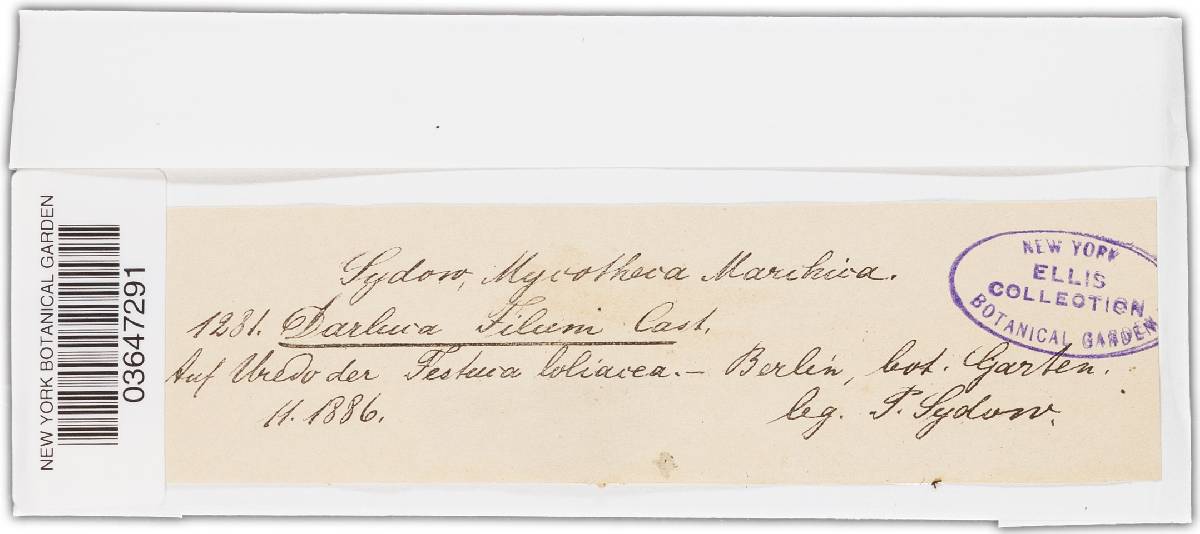 NEW YORK BOTANICAL GARDEN
03647291
Sydow, Mycotheca Marchica.
1281. Darluca Filum Cast.
Auf Uredo der Festuca loliacea. — Berlin, bot. Garten.
11. 1886.
leg. P. Sydow.
NEW YORK
ELLIS
COLLECTION
BOTANICAL GARDEN